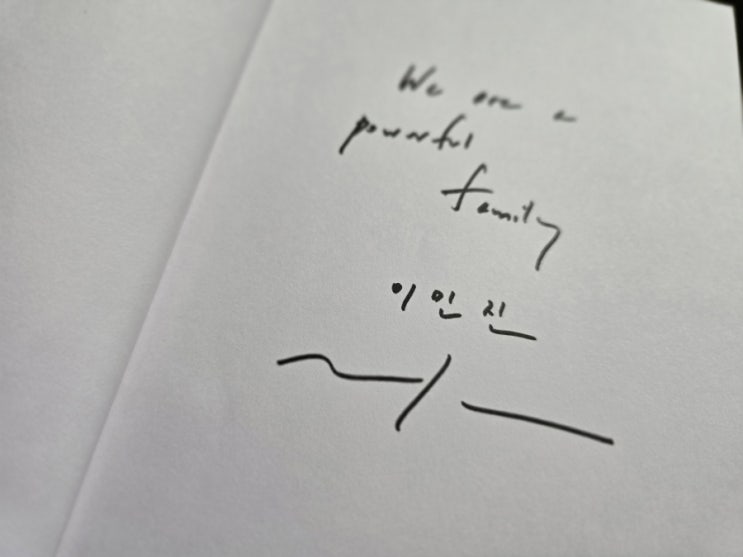 We are a
powerful
family
이인진